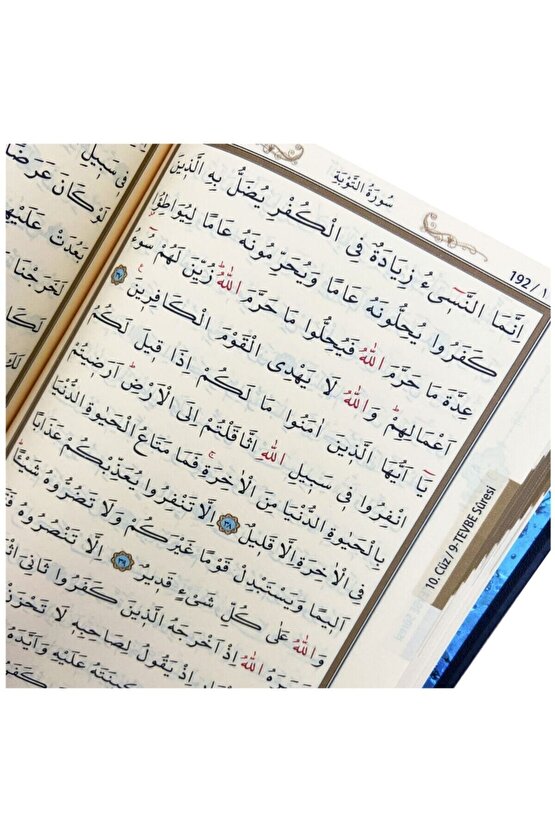 سُورَةُ التَّوْبَةِ
192 / 1
اِنَّمَا النَّس۪ٓيءُ زِيَادَةٌ فِي الْكُفْرِ يُضَلُّ بِهِ الَّذ۪ينَ
كَفَرُوا يُحِلُّونَهُ عَاماً وَيُحَرِّمُونَهُ عَاماً لِيُوَاطِؤُ۫ا
عِدَّةَ مَا حَرَّمَ اللّٰهُ فَيُحِلُّوا مَا حَرَّمَ اللّٰهُۜ زُيِّنَ لَهُمْ سُٓوءُ
اَعْمَالِهِمْۜ وَاللّٰهُ لَا يَهْدِي الْقَوْمَ الْكَافِر۪ينَ ٣٧
يَٓا اَيُّهَا الَّذ۪ينَ اٰمَنُوا مَا لَكُمْ اِذَا ق۪يلَ لَكُمُ
انْفِرُوا ف۪ي سَب۪يلِ اللّٰهِ اثَّاقَلْتُمْ اِلَى الْاَرْضِۜ اَرَض۪يتُمْ
بِالْحَيٰوةِ الدُّنْيَا مِنَ الْاٰخِرَةِۚ فَمَا مَتَاعُ الْحَيٰوةِ الدُّنْيَا
فِي الْاٰخِرَةِ اِلَّا قَل۪يلٌ ٣٨ اِلَّا تَنْفِرُوا يُعَذِّبْكُمْ عَذَاباً
اَل۪يماً وَيَسْتَبْدِلْ قَوْماً غَيْرَكُمْ وَلَا تَضُرُّوهُ شَيْـٔاًۜ
وَاللّٰهُ عَلٰى كُلِّ شَيْءٍ قَد۪يرٌ ٣٩ اِلَّا تَنْصُرُوهُ
اللّٰهُ اِذْ اَخْرَجَهُ الَّذ۪ينَ كَفَرُوا ثَانِيَ
اِذْ يَقُولُ لِصَاحِبِه۪ لَا تَحْزَنْ
عَلَيْهِ وَاَيَّدَهُ
10. Cüz / 9-TEVBE Sûresi
ف۪ي سَب۪يلِ
لَوْ كَانَ عَرَضاً
بَعُدَتْ عَلَيْهِمُ
لَخَرَجْنَا